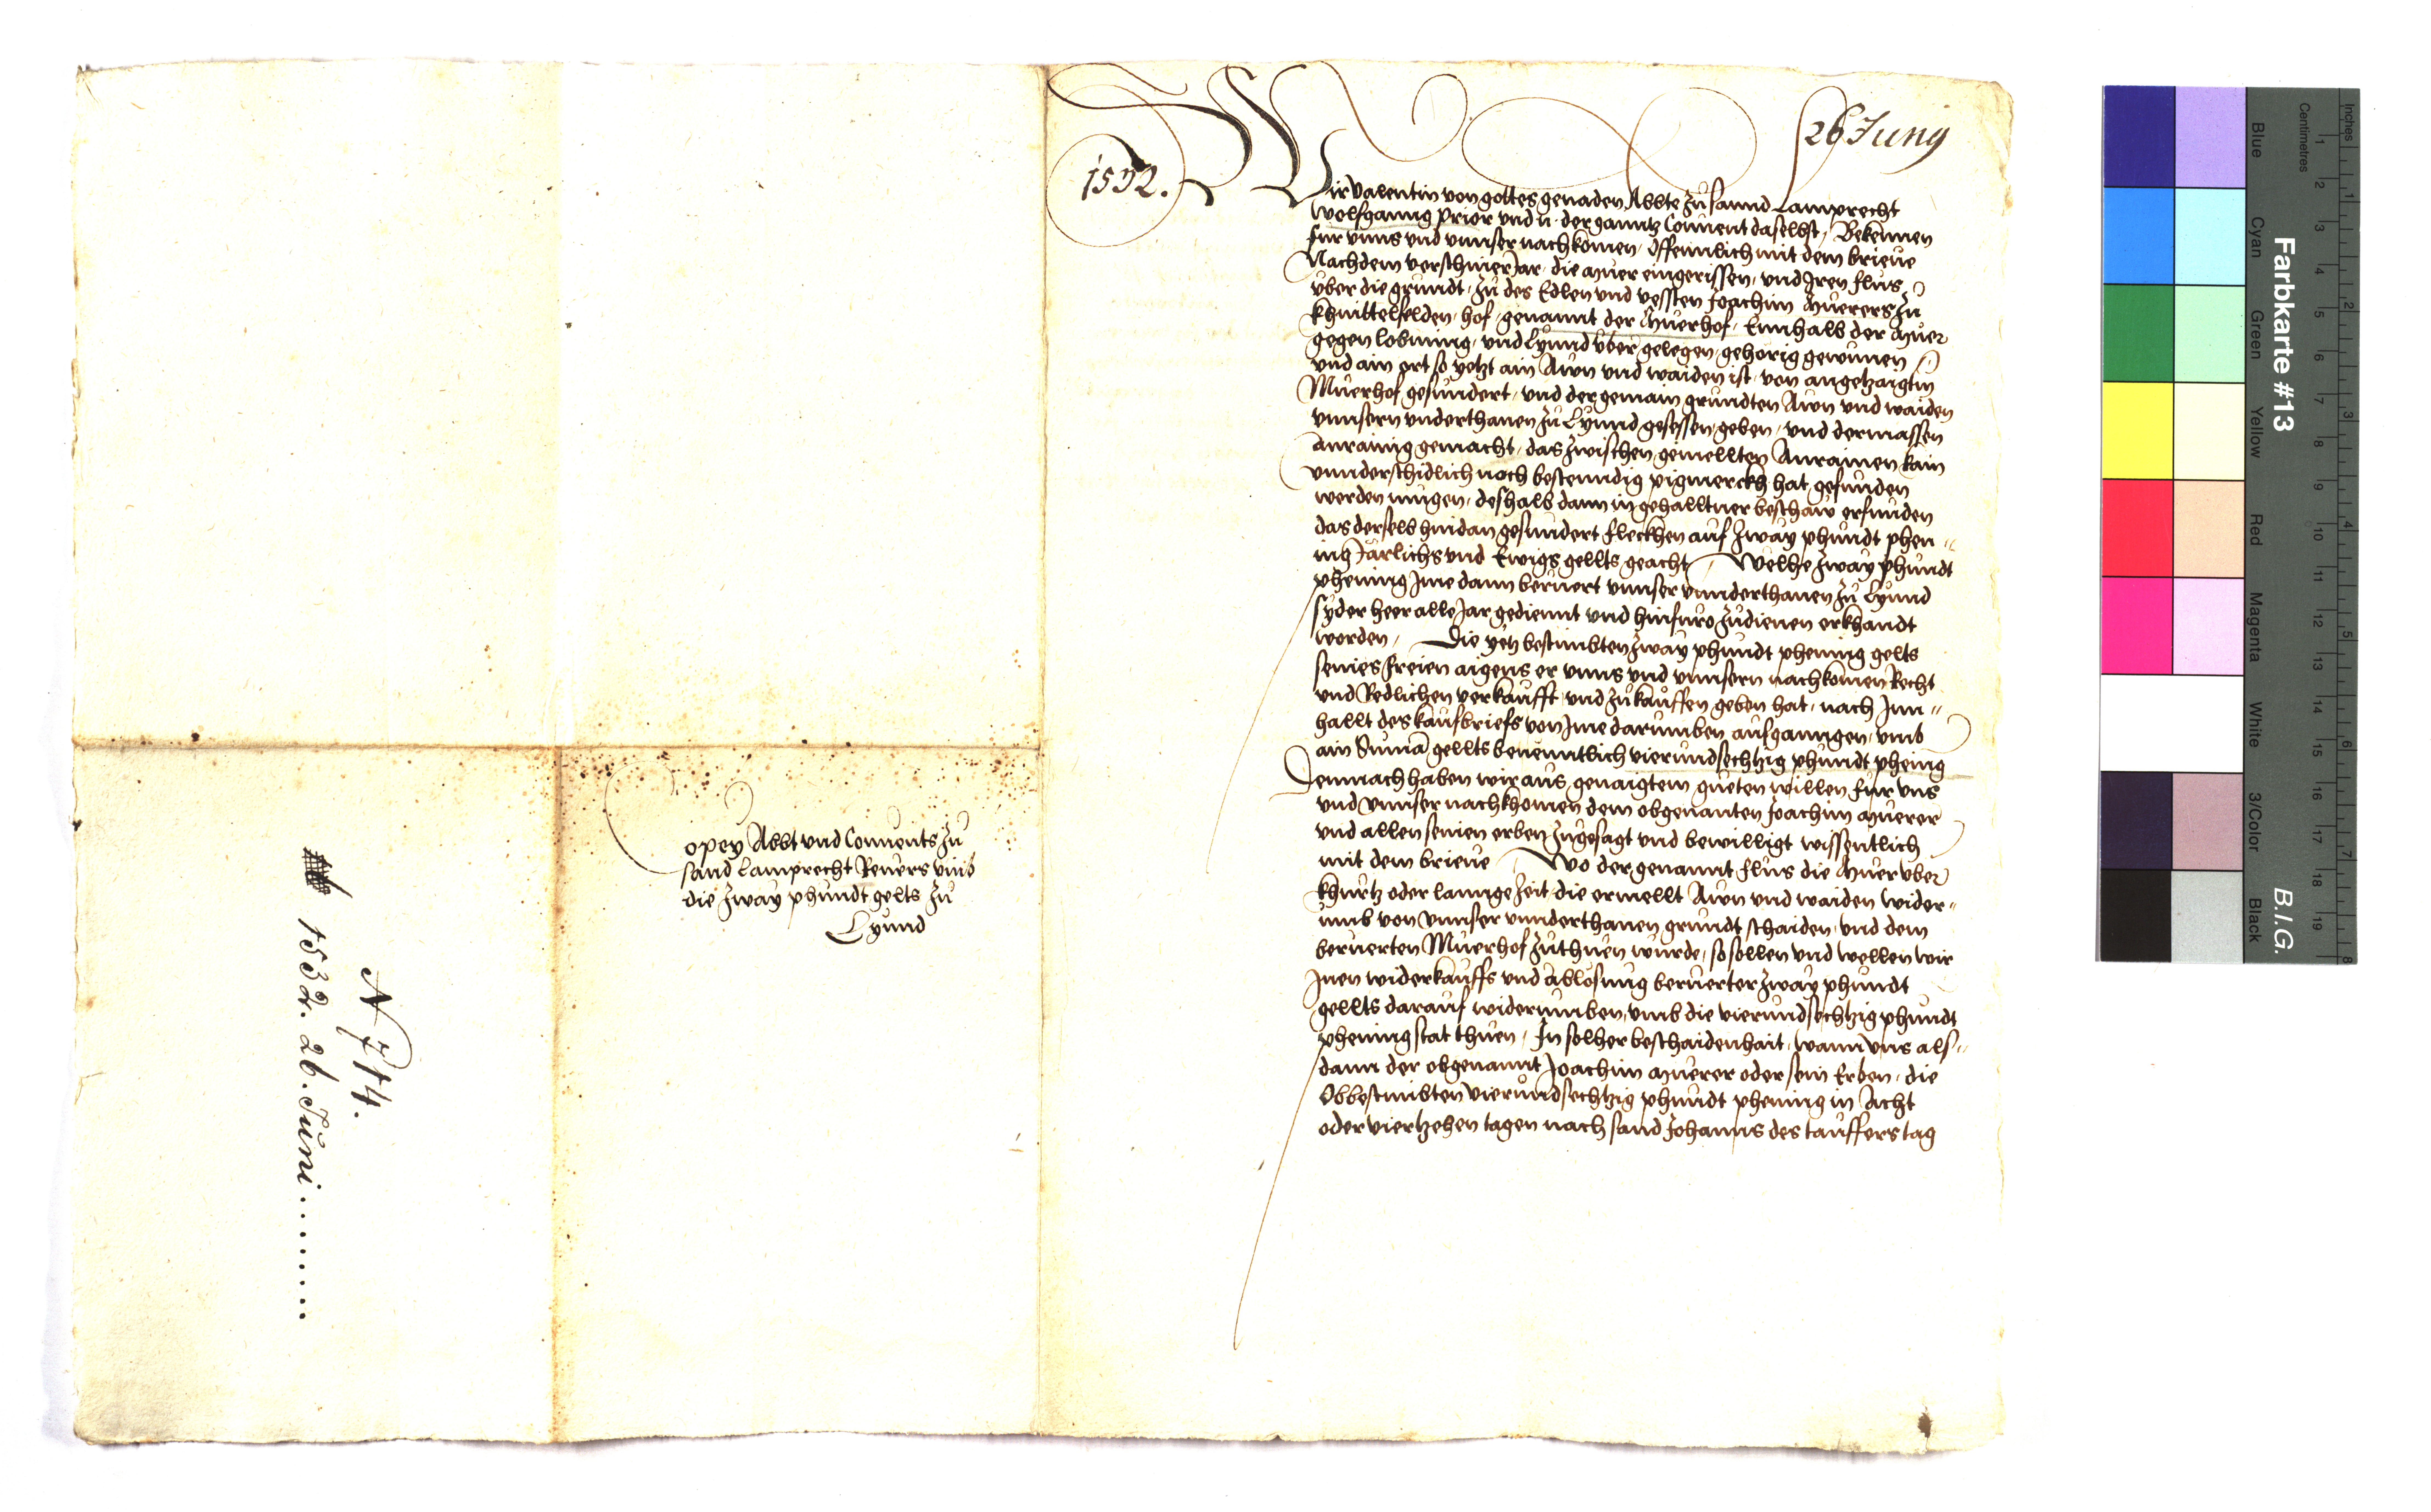 26 Junij
1532.
Wir Valentin von gottes genaden Abbte zu sannd Lamprecht
Wolfganng prior vnd n. der ganntz Conuent daselbst, Bekennen
fur vnns vnd vnnser nachkomen, offennlich mit dem brieue
Nachdem verschiner Jar, die Muer eingerissen, vnd Iren flus
vber die grundt, zu des Edlen vnd vessten Joachim Muerers zu
khnittelfelden, hof, genannt der Muerhof, Ennhalb der Muer
gegen lobming, vnd Lynnd vber gelegen gehorig gewunen
vnd ain ort so yetzt ain Awn vnd waiden ist, von angetzaigtm
Muerhof gesundert, vnd der gemain grundten Awn vnd waiden
vnnsern vnderthanen zu Lynnd gesessen, geben, vnd dermassen
anrainig gemacht, das zwischen gemellten Anrainen kain
vnnderschidlich noch bestenndig pigmerckh hat gefunden
werden mugen, deshalb dann in gehalltner beschaw erfunden
das derselb hindan gesundert fleckhen auf zway phundt phen-
ing Järlichs vnd Ewigs gellts geacht, Welhe zway phundt
phening Ime dann beruert vnnser vnnderthanen zu Lynnd
syder heer alle Jar gediennt vnd hinfuro zudienen erkhandt
worden, Die yetz bestimbten zway phundt phening gelts
seines freien aigens er vnns vnd vnnsern nachkomen Recht
vnd Redlichen verkaufft, vnd zukauffen geben hat, nach Inn-
hallt des kaufbriefs von Ime darumben ausganngen, vmb
ain Suma gellts benenntlich vierundsechtzig phundt phening
Demnach haben wir aus genaigtem gueten willen fur vns
vnd vnnser nachkhomen dem obgenanten Joachim Muerer
vnd allen seinen erben zugesagt vnd bewilligt wissentlich
mit dem brieue, Wo der genannt flus die Muer vber
khurtz oder lannge zeit die ermellt Awn vnd waiden wider-
umb von vnnser vnnderthanen grundt schaiden, vnd dem
beruerten Muerhof zuthuen wurde, so sollen vnd wellen wir
Inen widerkauffs vnd ablosung beruerter zway phundt
gellts darauf widerumben, vmb die vierundsechtzig phundt
phening stat thuen, In solher beschaidenhait, wann vns als-
dann der obgenannt Joachim Muerer oder sein Erben, die
Obbestimbten vierundsechtzig phundt phening in Acht
oder viertzehen tagen nach sand Johanns des tauffers tag
Copey Abbt vnd Conuents zu
sand Lamprecht Reuers vmb
die zway phundt gelts zu
Lynnd
N 714.
1532. 26. Juni.........
Farbkarte #13
B.I.G.
Blue
Cyan
Green
Yellow
Red
Magenta
White
3/Color
Black
Inches
Centimetres
1 2 3 4 5 6 7 8 9 10 11 12 13 14 15 16 17 18 19
1 2 3 4 5 6 7 8